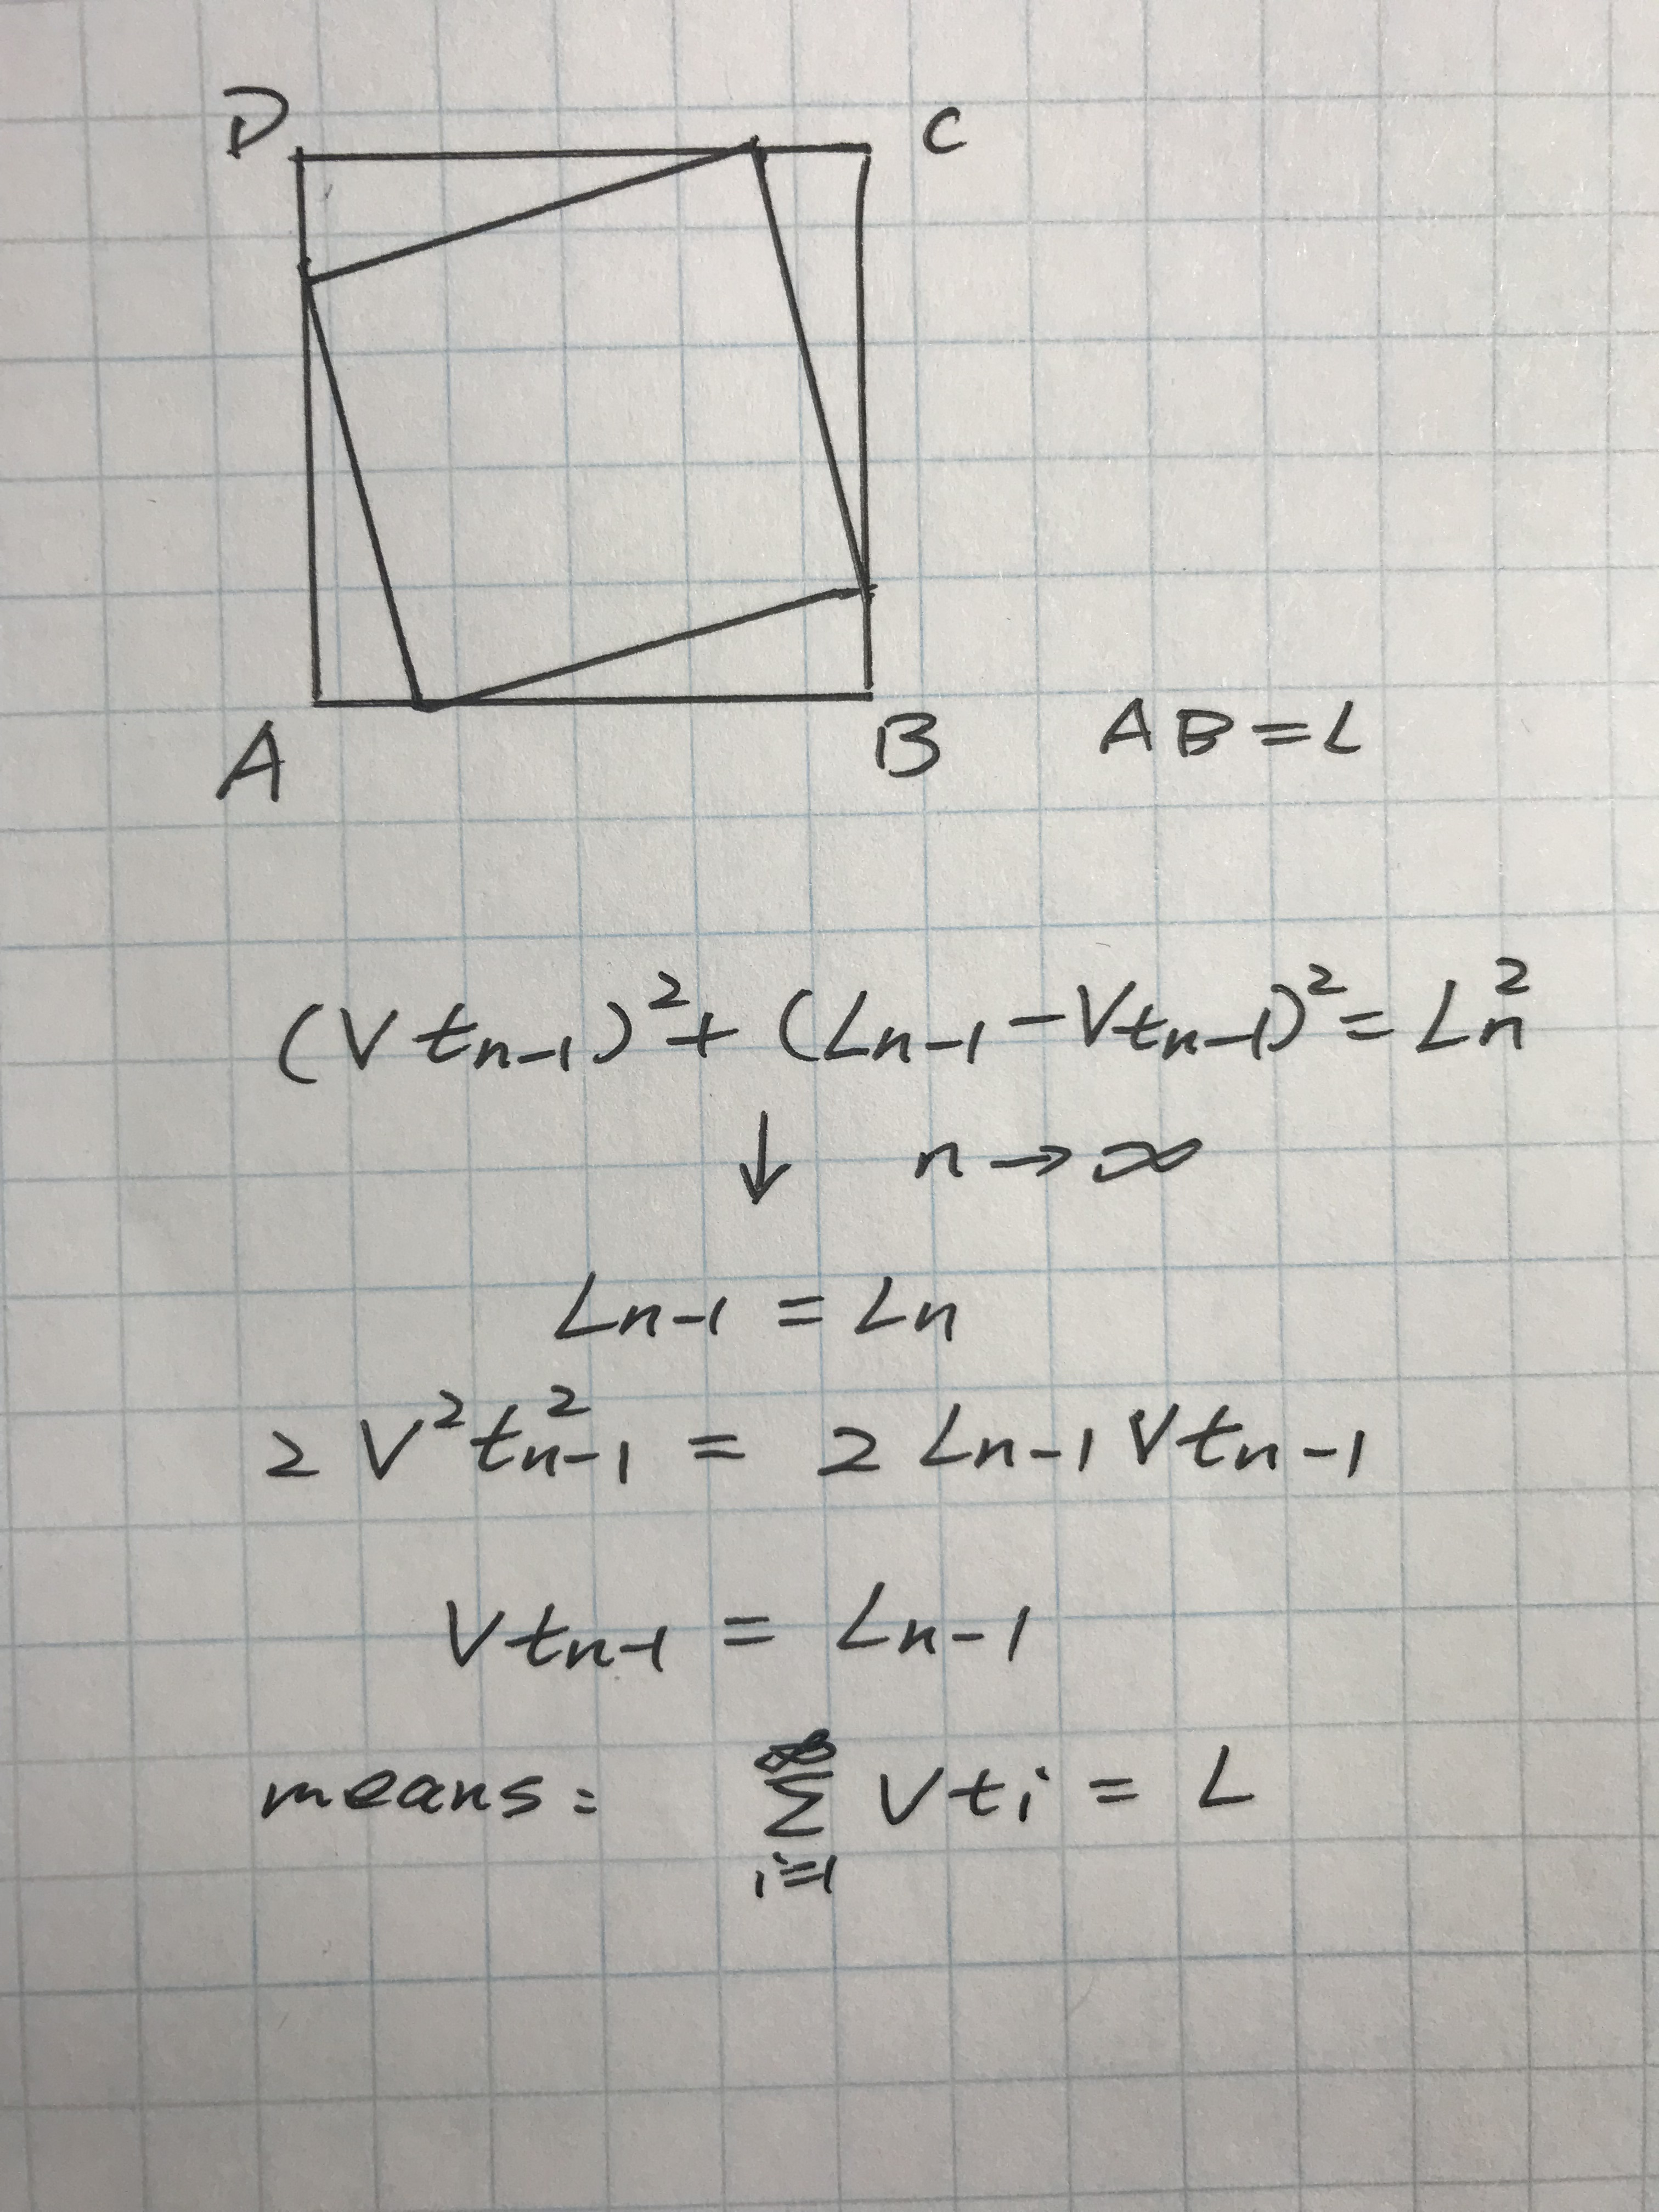 D C
A B AB=L
(Vtn-1)²+(Ln-1-Vtn-1)²=Ln²
↓ n→∞
Ln-1=Ln
2V²tn-1²=2Ln-1Vtn-1
Vtn-1=Ln-1
means: ∞Σi=1 Vti=L